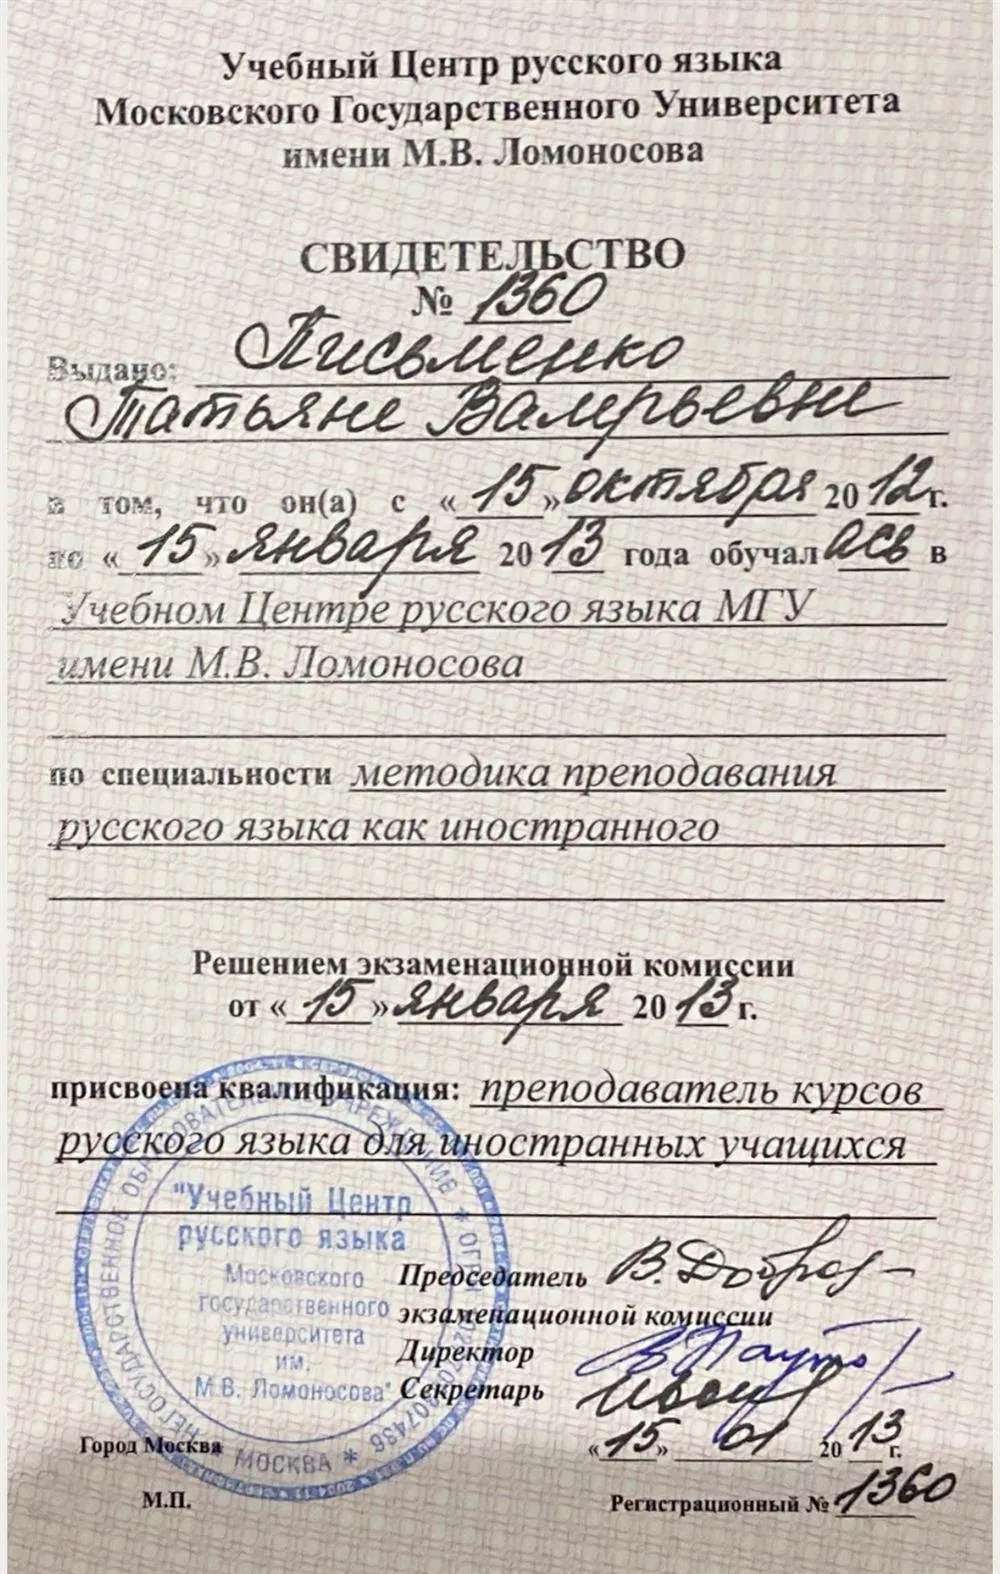 Учебный Центр русского языка
Московского Государственного Университета
имени М.В. Ломоносова
СВИДЕТЕЛЬСТВО
№ 1360
Выдано: Письменко
Татьяне Валерьевне
в том, что он(а) с «15» октября 2012 г.
по «15» января 2013 года обучалась в
Учебном Центре русского языка МГУ
имени М.В. Ломоносова
по специальности методика преподавания
русского языка как иностранного
Решением экзаменационной комиссии
от «15» января 2013 г.
присвоена квалификация: преподаватель курсов
русского языка для иностранных учащихся
НЕГОСУДАРСТВЕННОЕ ОБРАЗОВАТЕЛЬНОЕ УЧРЕЖДЕНИЕ
"Учебный Центр
русского языка
Московского
государственного
университета
им.
М.В. Ломоносова"
* МОСКВА *
Председатель
экзаменационной комиссии
Директор
Секретарь
Город Москва
«15» 01 2013 г.
М.П.
Регистрационный № 1360